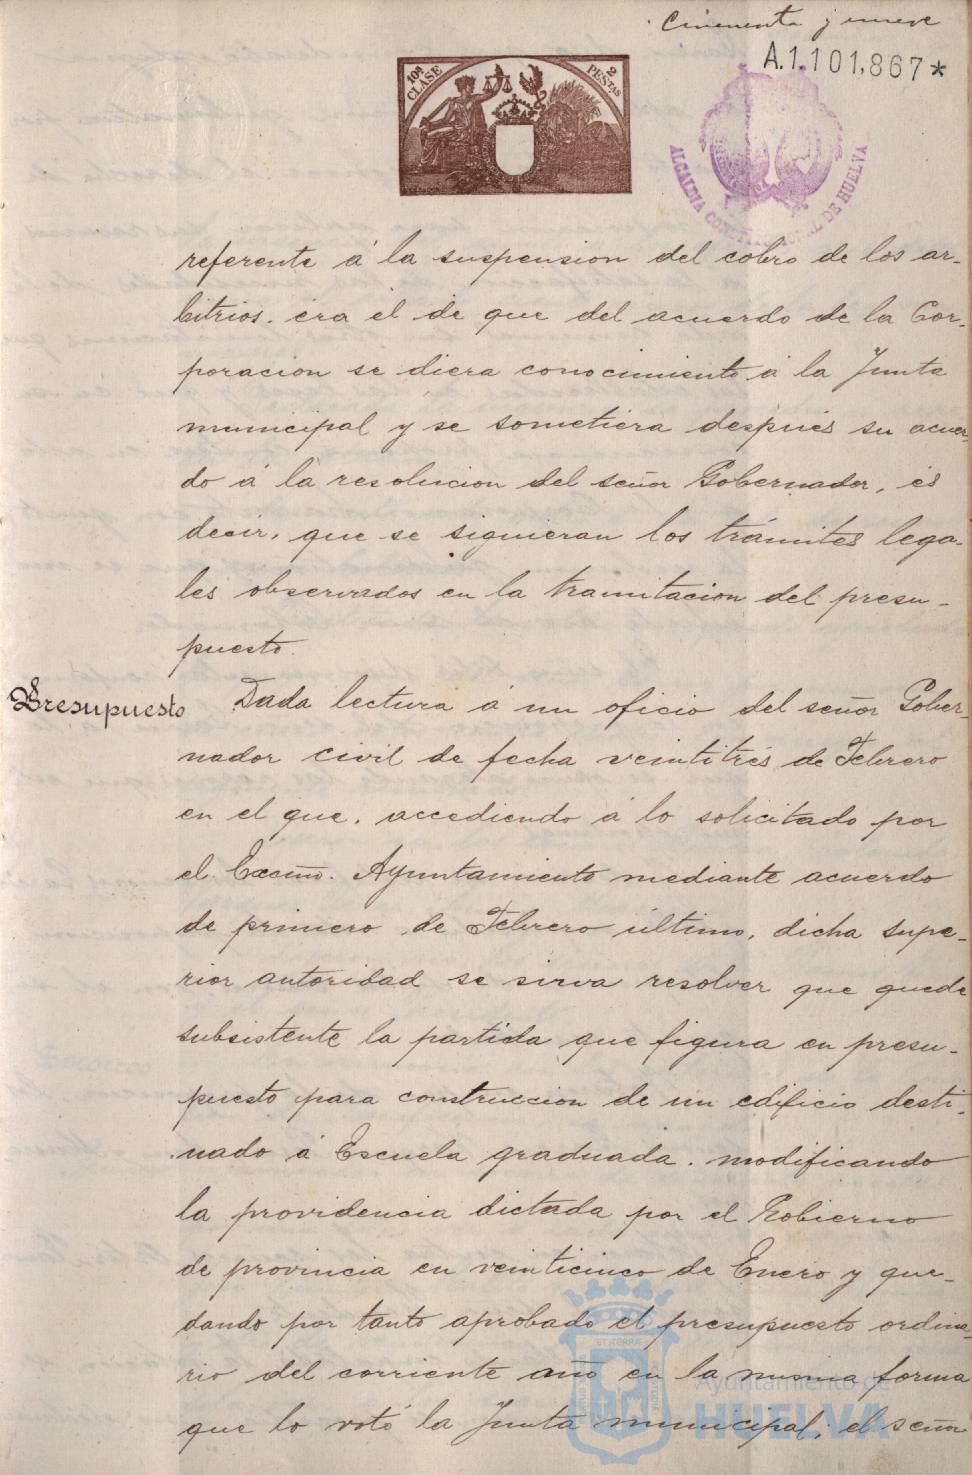 Cincuenta y nueve
A.1.101,867*
10ª CLASE
2 PESTAS
ALCALDIA CONSTITUCIONAL DE HUELVA
referente á la suspension del cobro de los ar-
bitrios. era el de que del acuerdo de la Cor-
poracion se diera conocimiento á la Junta
municipal y se sometiera después su acuer-
do á la resolucion del señor Gobernador, és
decir, que se siguieran los trámites lega-
les observados en la tramitacion del presu-
puesto.
Presupuesto
Dada lectura á un oficio del señor Gober-
nador civil de fecha veintitrés de Febrero
en el que, accediendo á lo solicitado por
el Excmo. Ayuntamiento mediante acuerdo
de primero de Febrero último, dicha supe-
rior autoridad se sirva resolver que quede
subsistente la partida que figura en presu-
puesto para construccion de un edificio desti-
nado á Escuela graduada. modificando
la providencia dictada por el Gobierno
de provincia en veinticinco de Enero y que-
dando por tanto aprobado el presupuesto ordina-
rio del corriente año en la misma forma
que lo votó la Junta municipal, el señor
Ayuntamiento de
HUELVA